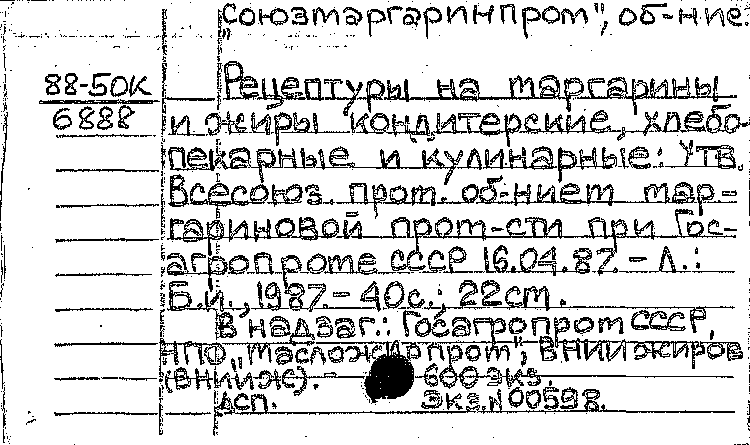 „Союзмаргаринпром", об-ние.
88-50К
6888
Рецептуры на маргарины
и жиры кондитерские, хлебо-
пекарные и кулинарные: Утв.
Всесоюз. пром. об-нием мар-
гариновой пром-сти при Гос-
агропроме СССР 16.04.87. - Л.:
Б.и., 1987. - 40с.; 22см.
В надзаг.: Госагропром СССР,
НПФ „Масложирпром", ВНИИжиров
(ВНИИЖ). - 600 экз.
ДСП. Экз.N 00598.